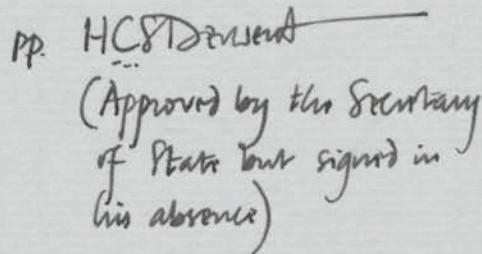 pp. HCS
(Approved by the Secretary
of State but signed in
his absence)